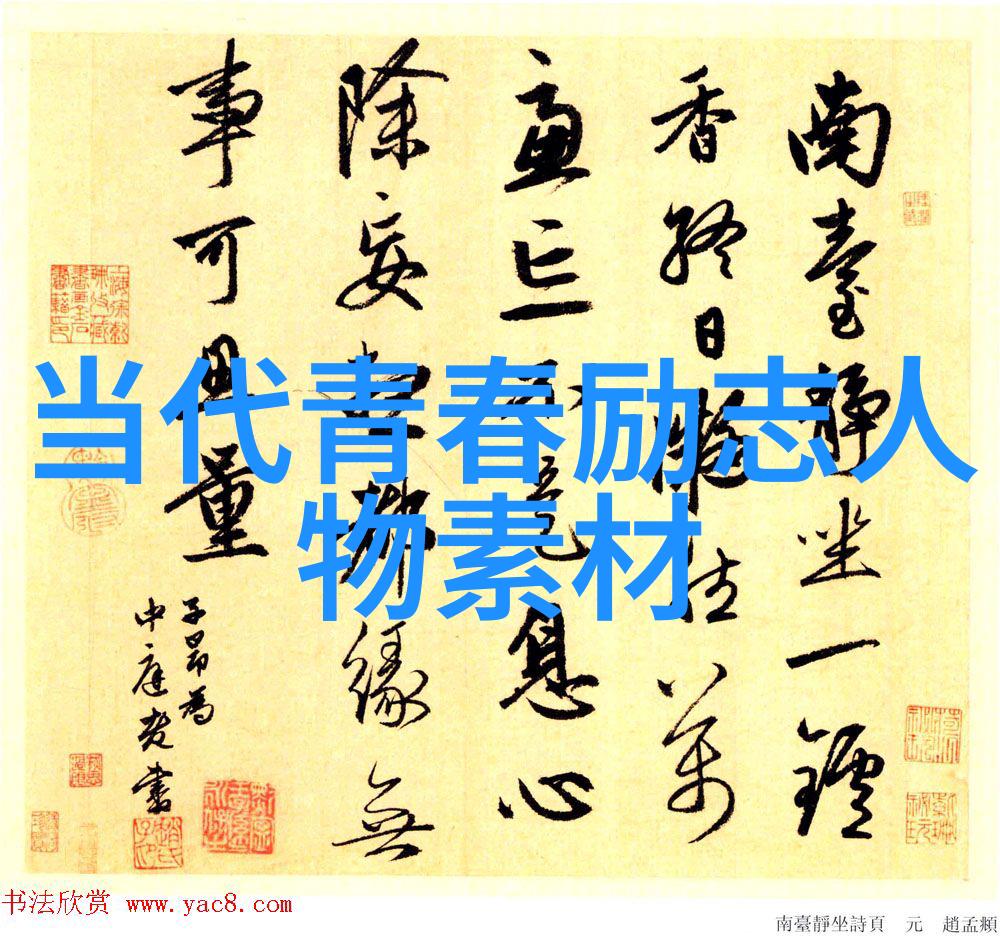 当代青春励志人
物素材
南臺靜坐一鑪
香終日凝萬
慮亡不是息心
除妄想都緣無
事可思量
子昂為
中庭老書
书法欣赏 www.yac8.com
南臺靜坐詩頁 元 趙孟頫